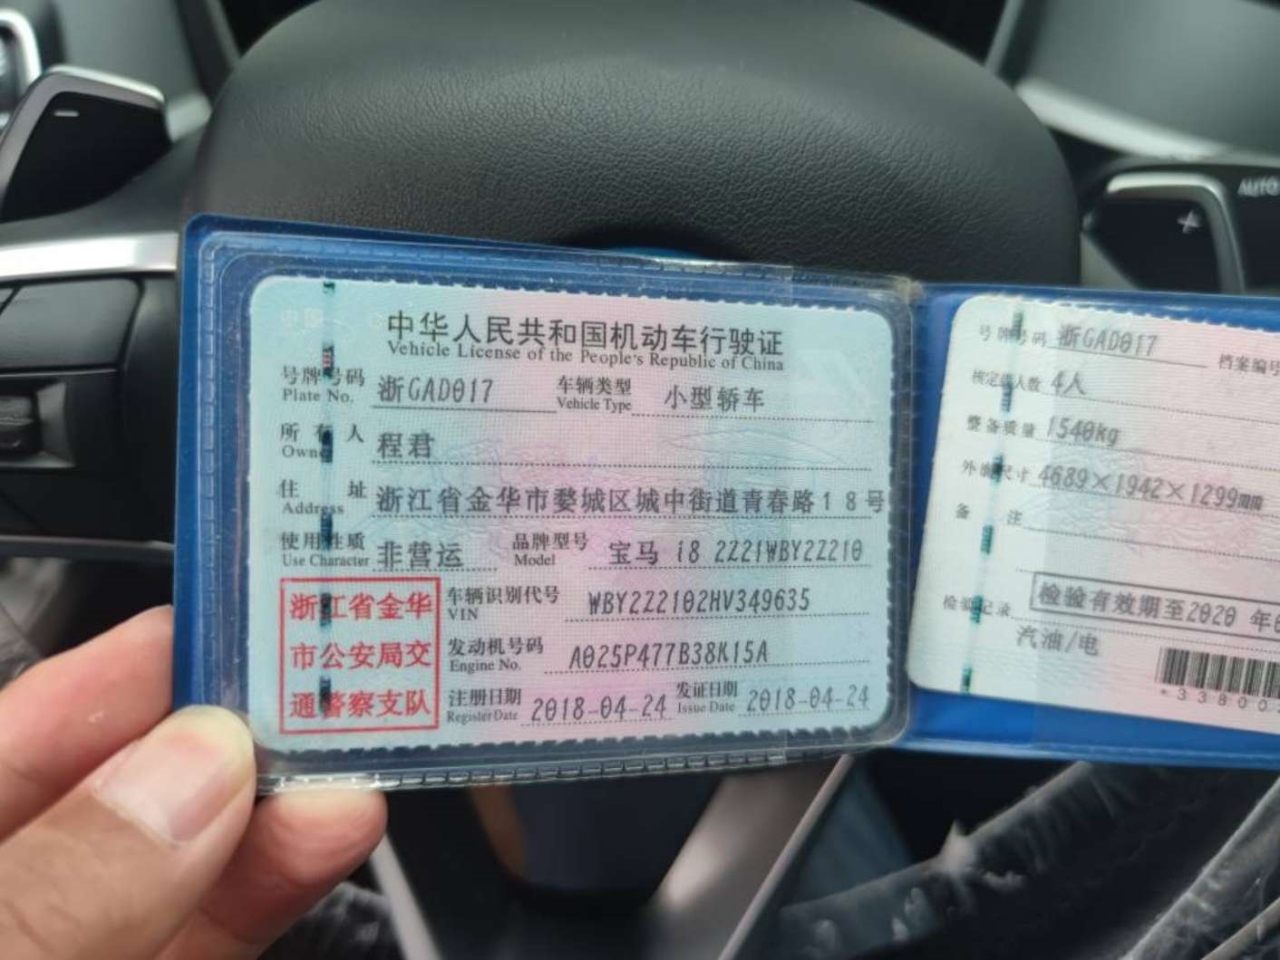 中华人民共和国机动车行驶证
Vehicle License of the People's Republic of China
号牌号码 浙GAD017 车辆类型 小型轿车
Plate No. Vehicle Type
所有人 程君
Owner
住址 浙江省金华市婺城区城中街道青春路18号
Address
使用性质 非营运 品牌型号 宝马 i8 2Z21WBY2Z210
Use Character Model
浙江省金华
市公安局交
通警察支队
车辆识别代号 WBY2Z2102HV349635
VIN
发动机号码 A025P477B38K15A
Engine No.
注册日期 2018-04-24 发证日期 2018-04-24
Register Date Issue Date
号牌号码 浙GAD017 档案编号
核定载人数 4人
整备质量 1540kg
外廓尺寸 4689×1942×1299mm
备注
检验记录 检验有效期至2020 年
汽油/电
AUTO